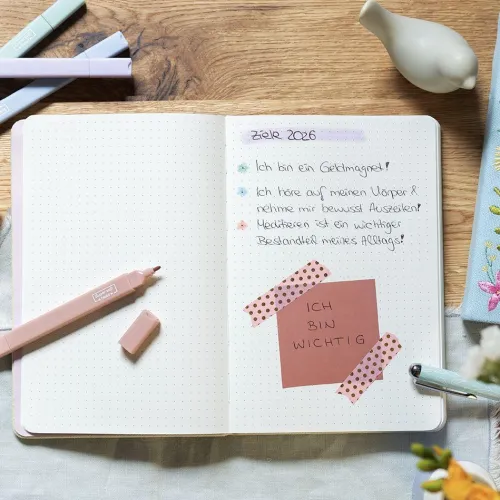 Ziele 2026
Ich bin ein Geldmagnet!
Ich höre auf meinen Körper &
nehme mir bewusst Auszeiten!
Meditieren ist ein wichtiger
Bestandteil meines Alltags!
ICH
BIN
WICHTIG